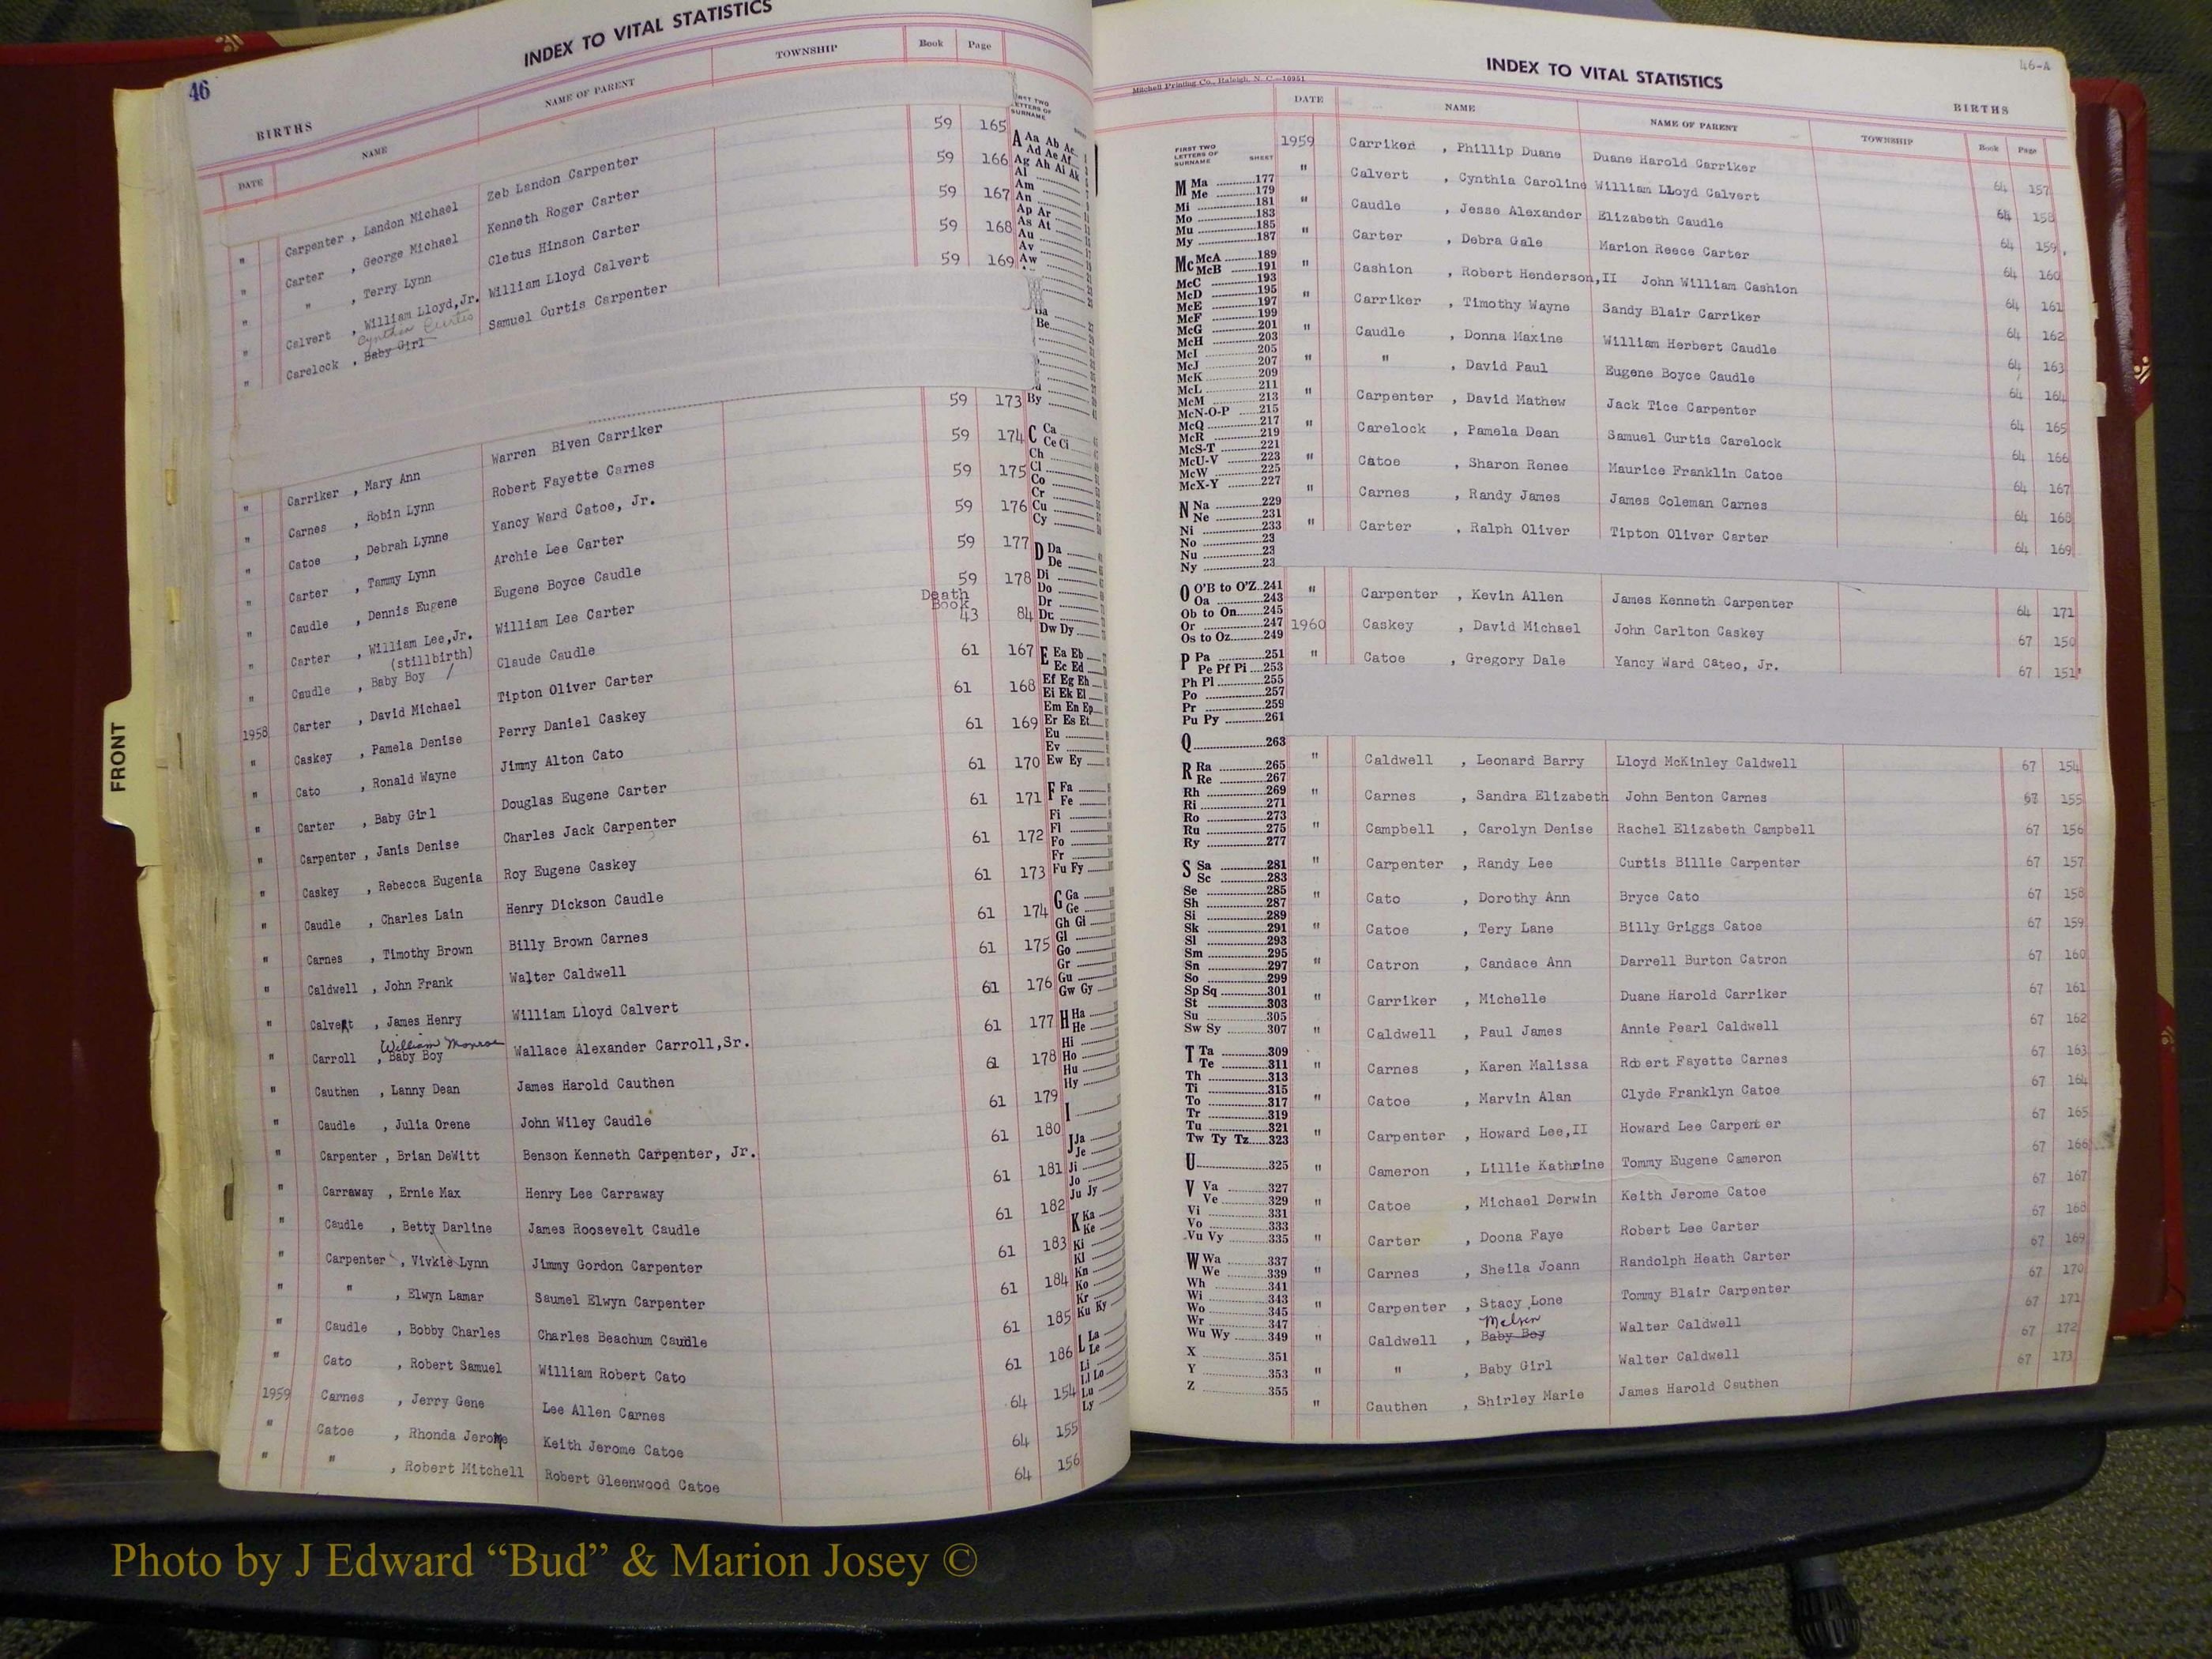 46
INDEX TO VITAL STATISTICS
BIRTHS
DATE NAME NAME OF PARENT TOWNSHIP Book Page
" Carpenter , Landon Michael Zeb Landon Carpenter 59 165
" Carter , George Michael Kenneth Roger Carter 59 166
" " , Terry Lynn Cletus Hinson Carter 59 167
" Calvert , William Lloyd,Jr. William Lloyd Calvert 59 168
Cynthea Curtis
" Carelock , Baby Girl Samuel Curtis Carpenter 59 169
" Carriker , Mary Ann Warren Biven Carriker 59 173
" Carnes , Robin Lynn Robert Fayette Carnes 59 174
" Catoe , Debrah Lynne Yancy Ward Catoe, Jr. 59 175
" Carter , Tammy Lynn Archie Lee Carter 59 176
" Caudle , Dennis Eugene Eugene Boyce Caudle 59 177
" Carter , William Lee,Jr. William Lee Carter 59 178
(stillbirth)
Death Book
" Caudle , Baby Boy Claude Caudle 43 84
1958 Carter , David Michael Tipton Oliver Carter 61 167
" Caskey , Pamela Denise Perry Daniel Caskey 61 168
" Cato , Ronald Wayne Jimmy Alton Cato 61 169
" Carter , Baby Girl Douglas Eugene Carter 61 170
" Carpenter , Janis Denise Charles Jack Carpenter 61 171
" Caskey , Rebecca Eugenia Roy Eugene Caskey 61 172
" Caudle , Charles Lain Henry Dickson Caudle 61 173
" Carnes , Timothy Brown Billy Brown Carnes 61 174
" Caldwell , John Frank Walter Caldwell 61 175
" Calvert , James Henry William Lloyd Calvert 61 176
William Monroe
" Carroll , Baby Boy Wallace Alexander Carroll,Sr. 61 177
" Cauthen , Lanny Dean James Harold Cauthen 61 178
" Caudle , Julia Orene John Wiley Caudle 61 179
" Carpenter , Brian DeWitt Benson Kenneth Carpenter, Jr. 61 180
" Carraway , Ernie Max Henry Lee Carraway 61 181
" Caudle , Betty Darline James Roosevelt Caudle 61 182
" Carpenter , Vivkie Lynn Jimmy Gordon Carpenter 61 183
" " , Elwyn Lamar Saumel Elwyn Carpenter 61 184
" Caudle , Bobby Charles Charles Beachum Caudle 61 185
" Cato , Robert Samuel William Robert Cato 61 186
1959 Carnes , Jerry Gene Lee Allen Carnes 64 154
" Catoe , Rhonda Jerome Keith Jerome Catoe 64 155
" " , Robert Mitchell Robert Gleenwood Catoe 64 156
A Aa Ab Ac
Ad Ae Af
Ag Ah Ai Ak
Al
Am
An
Ap Ar
As At
Au
Av
Aw
Be
By
C Ca
Ce Ci
Ch
Cl
Co
Cr
Cu
Cy
D Da
De
Di
Do
Dr
Du
Dw Dy
E Ea Eb
Ec Ed
Ef Eg Eh
Ei Ek El
Em En Ep
Er Es Et
Eu
Ev
Ew Ey
F Fa
Fe
Fi
Fl
Fo
Fr
Fu Fy
G Ga
Ge
Gh Gi
Gl
Go
Gr
Gu
Gw Gy
H Ha
He
Hi
Ho
Hu
Hy
I
J Ja
Je
Ji
Jo
Ju Jy
K Ka
Ke
Ki
Kl
Kn
Ko
Kr
Ku Ky
L La
Le
Li
Ll Lo
Lu
Ly
FRONT
Mitchell Printing Co., Raleigh, N. C.—10951
INDEX TO VITAL STATISTICS
46-A
BIRTHS
DATE NAME NAME OF PARENT TOWNSHIP Book Page
FIRST TWO LETTERS OF SURNAME SHEET
M Ma 177
Me 179
Mi 181
Mo 183
Mu 185
My 187
Mc McA 189
McB 191
McC 193
McD 195
McE 197
McF 199
McG 201
McH 203
McI 205
McJ 207
McK 209
McL 211
McM 213
McN-O-P 215
McQ 217
McR 219
McS-T 221
McU-V 223
McW 225
McX-Y 227
N Na 229
Ne 231
Ni 233
No 23
Nu 23
Ny 23
O O'B to O'Z 241
Oa 243
Ob to On 245
Or 247
Os to Oz 249
P Pa 251
Pe Pf Pi 253
Ph Pl 255
Po 257
Pr 259
Pu Py 261
Q 263
R Ra 265
Re 267
Rh 269
Ri 271
Ro 273
Ru 275
Ry 277
S Sa 281
Sc 283
Se 285
Sh 287
Si 289
Sk 291
Sl 293
Sm 295
Sn 297
So 299
Sp Sq 301
St 303
Su 305
Sw Sy 307
T Ta 309
Te 311
Th 313
Ti 315
To 317
Tr 319
Tu 321
Tw Ty Tz 323
U 325
V Va 327
Ve 329
Vi 331
Vo 333
Vu Vy 335
W Wa 337
We 339
Wh 341
Wi 343
Wo 345
Wr 347
Wu Wy 349
X 351
Y 353
Z 355
1959 Carriker , Phillip Duane Duane Harold Carriker 64 157
" Calvert , Cynthia Caroline William LLoyd Calvert 64 158
" Caudle , Jesse Alexander Elizabeth Caudle 64 159
" Carter , Debra Gale Marion Reece Carter 64 160
" Cashion , Robert Henderson,II John William Cashion 64 161
" Carriker , Timothy Wayne Sandy Blair Carriker 64 162
" Caudle , Donna Maxine William Herbert Caudle 64 163
" " , David Paul Eugene Boyce Caudle 64 164
" Carpenter , David Mathew Jack Tice Carpenter 64 165
" Carelock , Pamela Dean Samuel Curtis Carelock 64 166
" Catoe , Sharon Renee Maurice Franklin Catoe 64 167
" Carnes , Randy James James Coleman Carnes 64 168
" Carter , Ralph Oliver Tipton Oliver Carter 64 169
" Carpenter , Kevin Allen James Kenneth Carpenter 64 171
1960 Caskey , David Michael John Carlton Caskey 67 150
" Catoe , Gregory Dale Yancy Ward Cateo, Jr. 67 151
" Caldwell , Leonard Barry Lloyd McKinley Caldwell 67 154
" Carnes , Sandra Elizabeth John Benton Carnes 67 155
" Campbell , Carolyn Denise Rachel Elizabeth Campbell 67 156
" Carpenter , Randy Lee Curtis Billie Carpenter 67 157
" Cato , Dorothy Ann Bryce Cato 67 158
" Catoe , Tery Lane Billy Griggs Catoe 67 159
" Catron , Candace Ann Darrell Burton Catron 67 160
" Carriker , Michelle Duane Harold Carriker 67 161
" Caldwell , Paul James Annie Pearl Caldwell 67 162
" Carnes , Karen Malissa Robert Fayette Carnes 67 163
" Catoe , Marvin Alan Clyde Franklyn Catoe 67 164
" Carpenter , Howard Lee,II Howard Lee Carpenter 67 165
" Cameron , Lillie Kathrine Tommy Eugene Cameron 67 166
" Catoe , Michael Derwin Keith Jerome Catoe 67 167
" Carter , Doona Faye Robert Lee Carter 67 168
" Carnes , Sheila Joann Randolph Heath Carter 67 169
" Carpenter , Stacy Lone Tommy Blair Carpenter 67 170
Melvin
" Caldwell , Baby Boy Walter Caldwell 67 171
" " , Baby Girl Walter Caldwell 67 172
" Cauthen , Shirley Marie James Harold Cauthen 67 173
Photo by J Edward “Bud” & Marion Josey ©